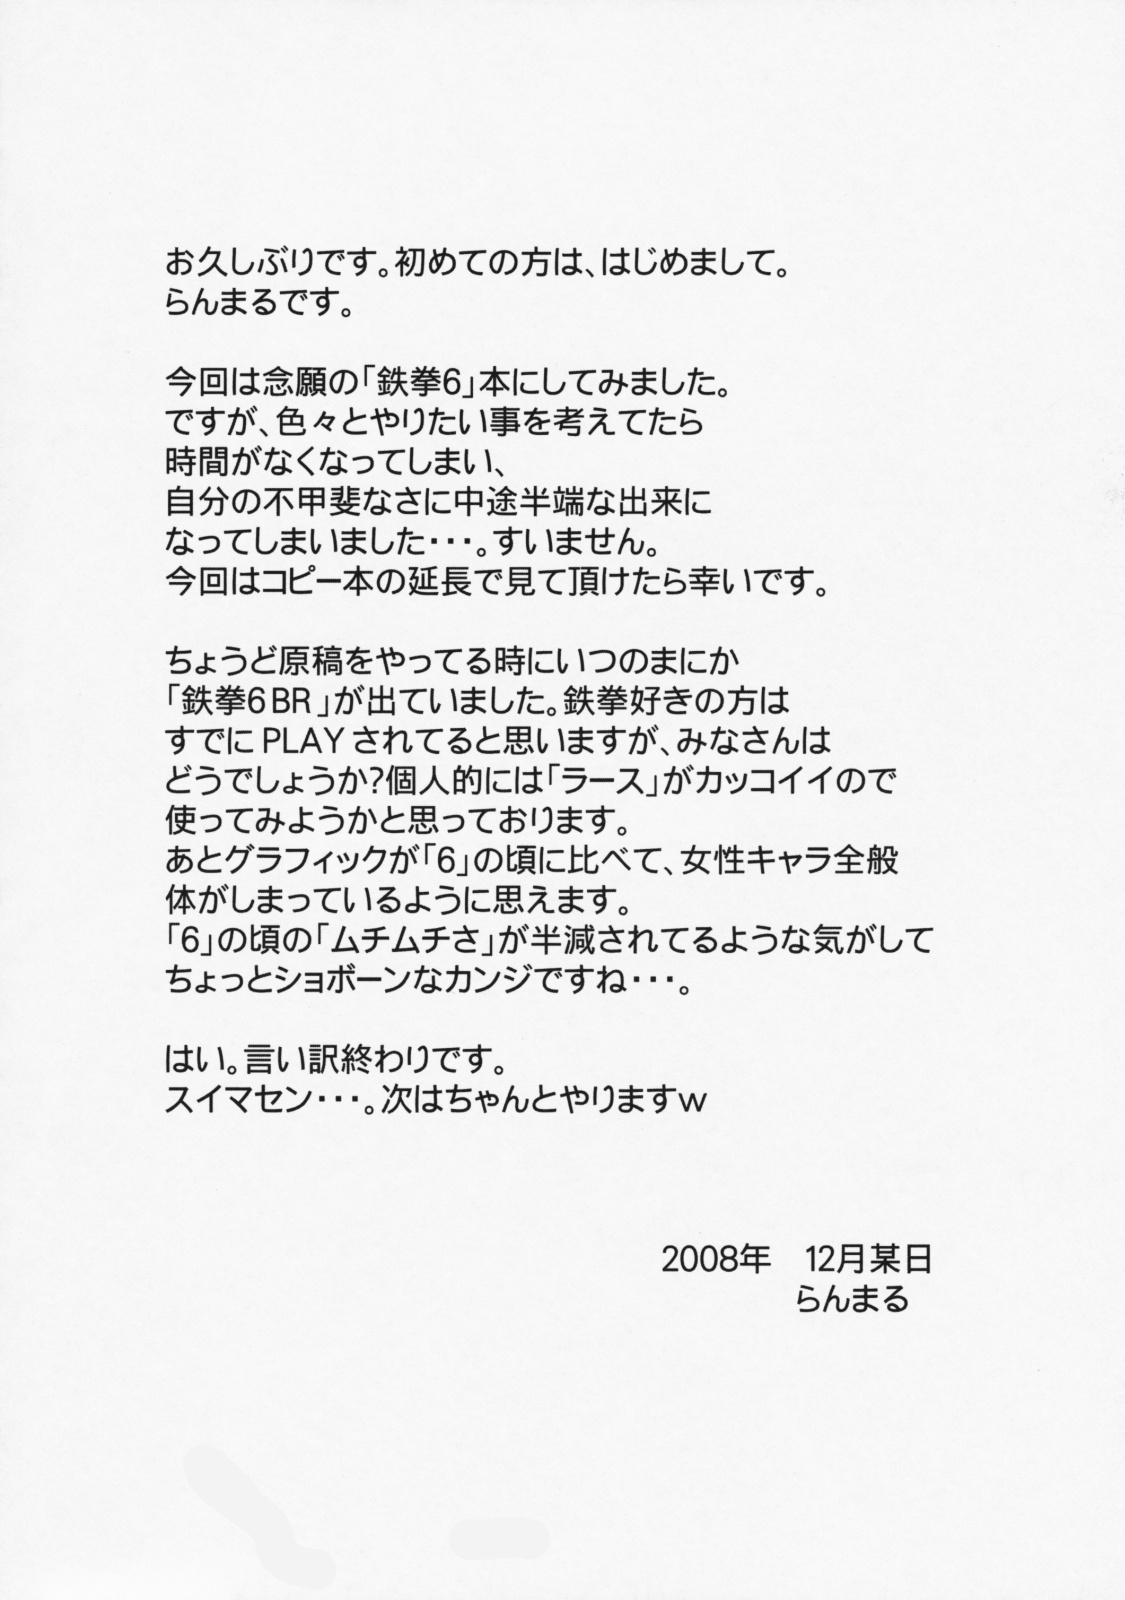 お久しぶりです。初めての方は、はじめまして。
らんまるです。
今回は念願の「鉄拳6」本にしてみました。
ですが、色々とやりたい事を考えてたら
時間がなくなってしまい、
自分の不甲斐なさに中途半端な出来に
なってしまいました・・・。すいません。
今回はコピー本の延長で見て頂けたら幸いです。
ちょうど原稿をやってる時にいつのまにか
「鉄拳6BR」が出ていました。鉄拳好きの方は
すでにPLAYされてると思いますが、みなさんは
どうでしょうか?個人的には「ラース」がカッコイイので
使ってみようかと思っております。
あとグラフィックが「6」の頃に比べて、女性キャラ全般
体がしまっているように思えます。
「6」の頃の「ムチムチさ」が半減されてるような気がして
ちょっとショボーンなカンジですね・・・。
はい。言い訳終わりです。
スイマセン・・・。次はちゃんとやりますw
2008年　12月某日
らんまる